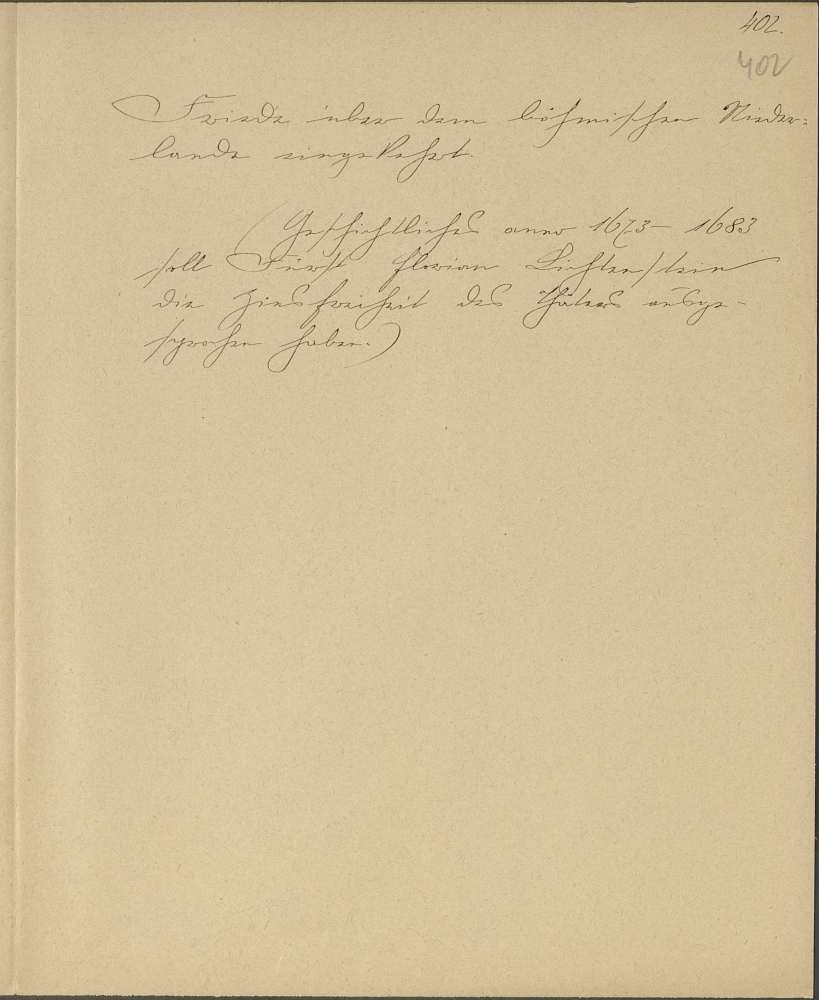 402.
402
Friede über dem böhmischen Nieder-
lande eingekehrt.
(Geschichtliches anno 1673 – 1683
soll Fürst Florian Lichtenstein
die Zinsfreiheit des ausge-
sprochen haben.)